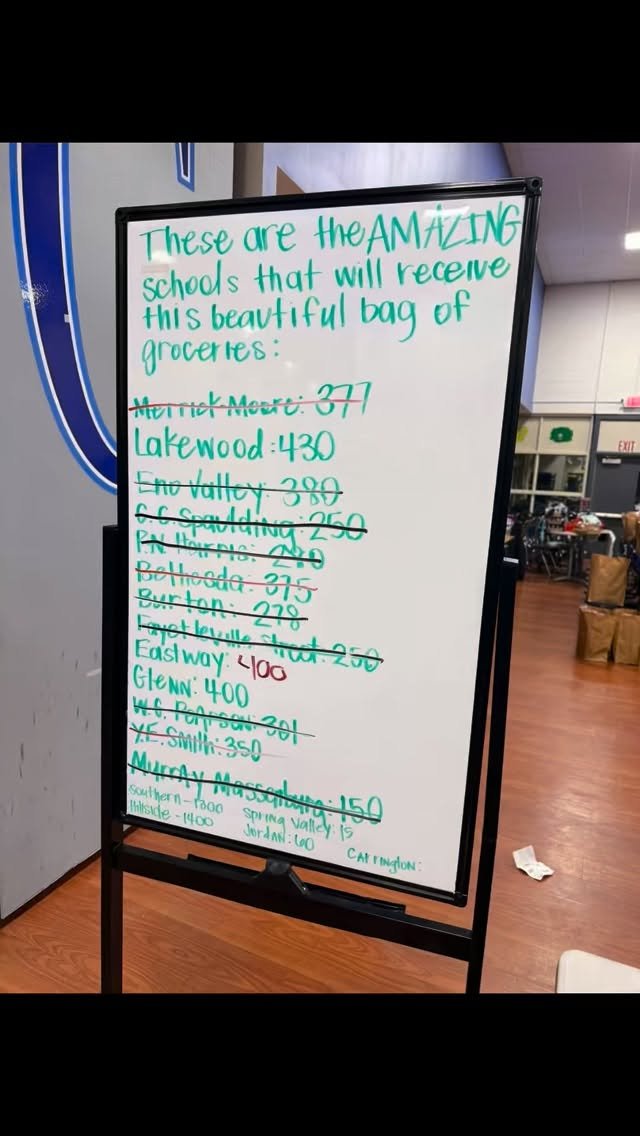 These are the AMAZING
schools that will receive
this beautiful bag of
groceries:
Merrick Moore: 377
Lakewood: 430
Eno Valley: 380
C.C. Spaulding: 250
R.N. Harris:
Bethesda: 375
Burton: 278
Fayetteville Street: 250
Eastway: 400
Glenn: 400
W.G. Pearson: 301
Y.E. Smith: 350
Murray Massenburg: 150
Southern - 1300
Spring Valley: 15
Hillside - 1400
Jordan: 60
Carrington:
EXIT